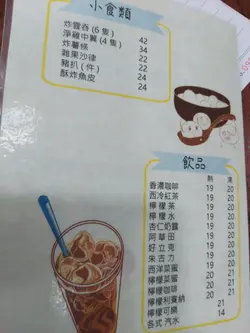 小食類
炸雲吞(6隻) 42
淨雞中翼(4隻) 34
炸薯條 22
雜果沙律 22
豬扒(件) 24
酥炸魚皮 24
飲品
熱 凍
香濃咖啡 19 20
西冷紅茶 19 20
檸檬茶 19 20
檸檬水 19 20
杏仁奶露 19 20
阿華田 19 20
好立克 19 20
朱古力 19 20
西洋菜蜜 19 20
檸檬菜蜜 20 21
檸檬咖啡 20 21
檸檬利賓納 20 21
檸檬可樂 21
各式汽水 14